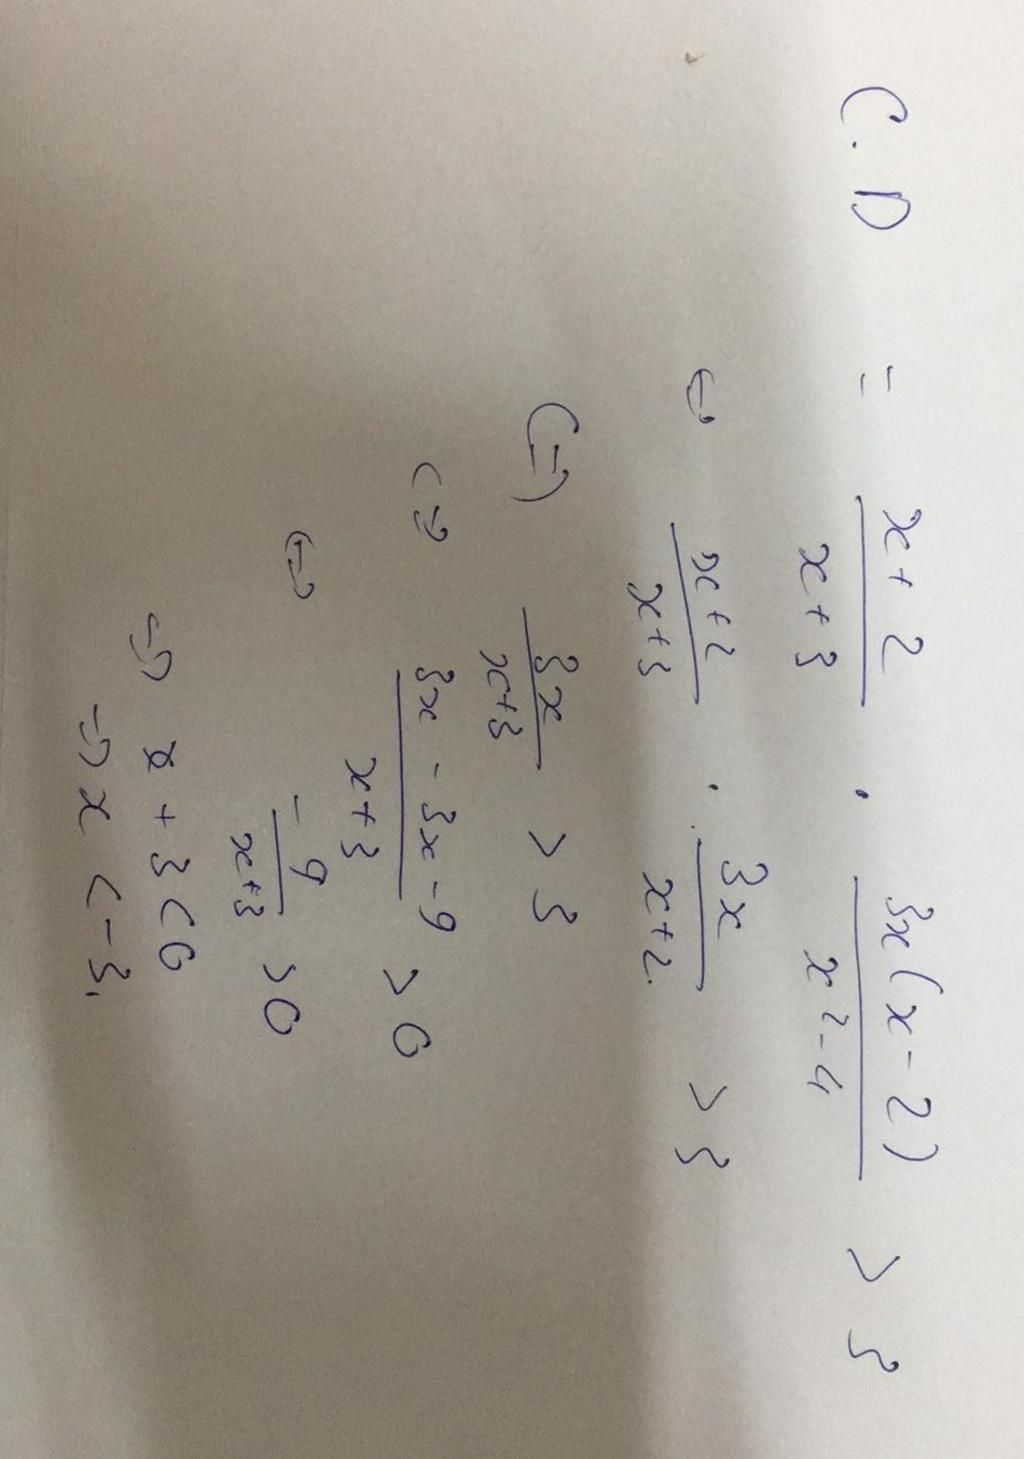 C.D = \frac{x+2}{x+3} . \frac{3x(x-2)}{x^2-4} > 3
⇔ \frac{x+2}{x+3} . \frac{3x}{x+2} > 3
⇔ \frac{3x}{x+3} > 3
⇔ \frac{3x-3x-9}{x+3} > 0
⇔ \frac{-9}{x+3} > 0
⇒ x+3 < 0
⇒ x < -3.